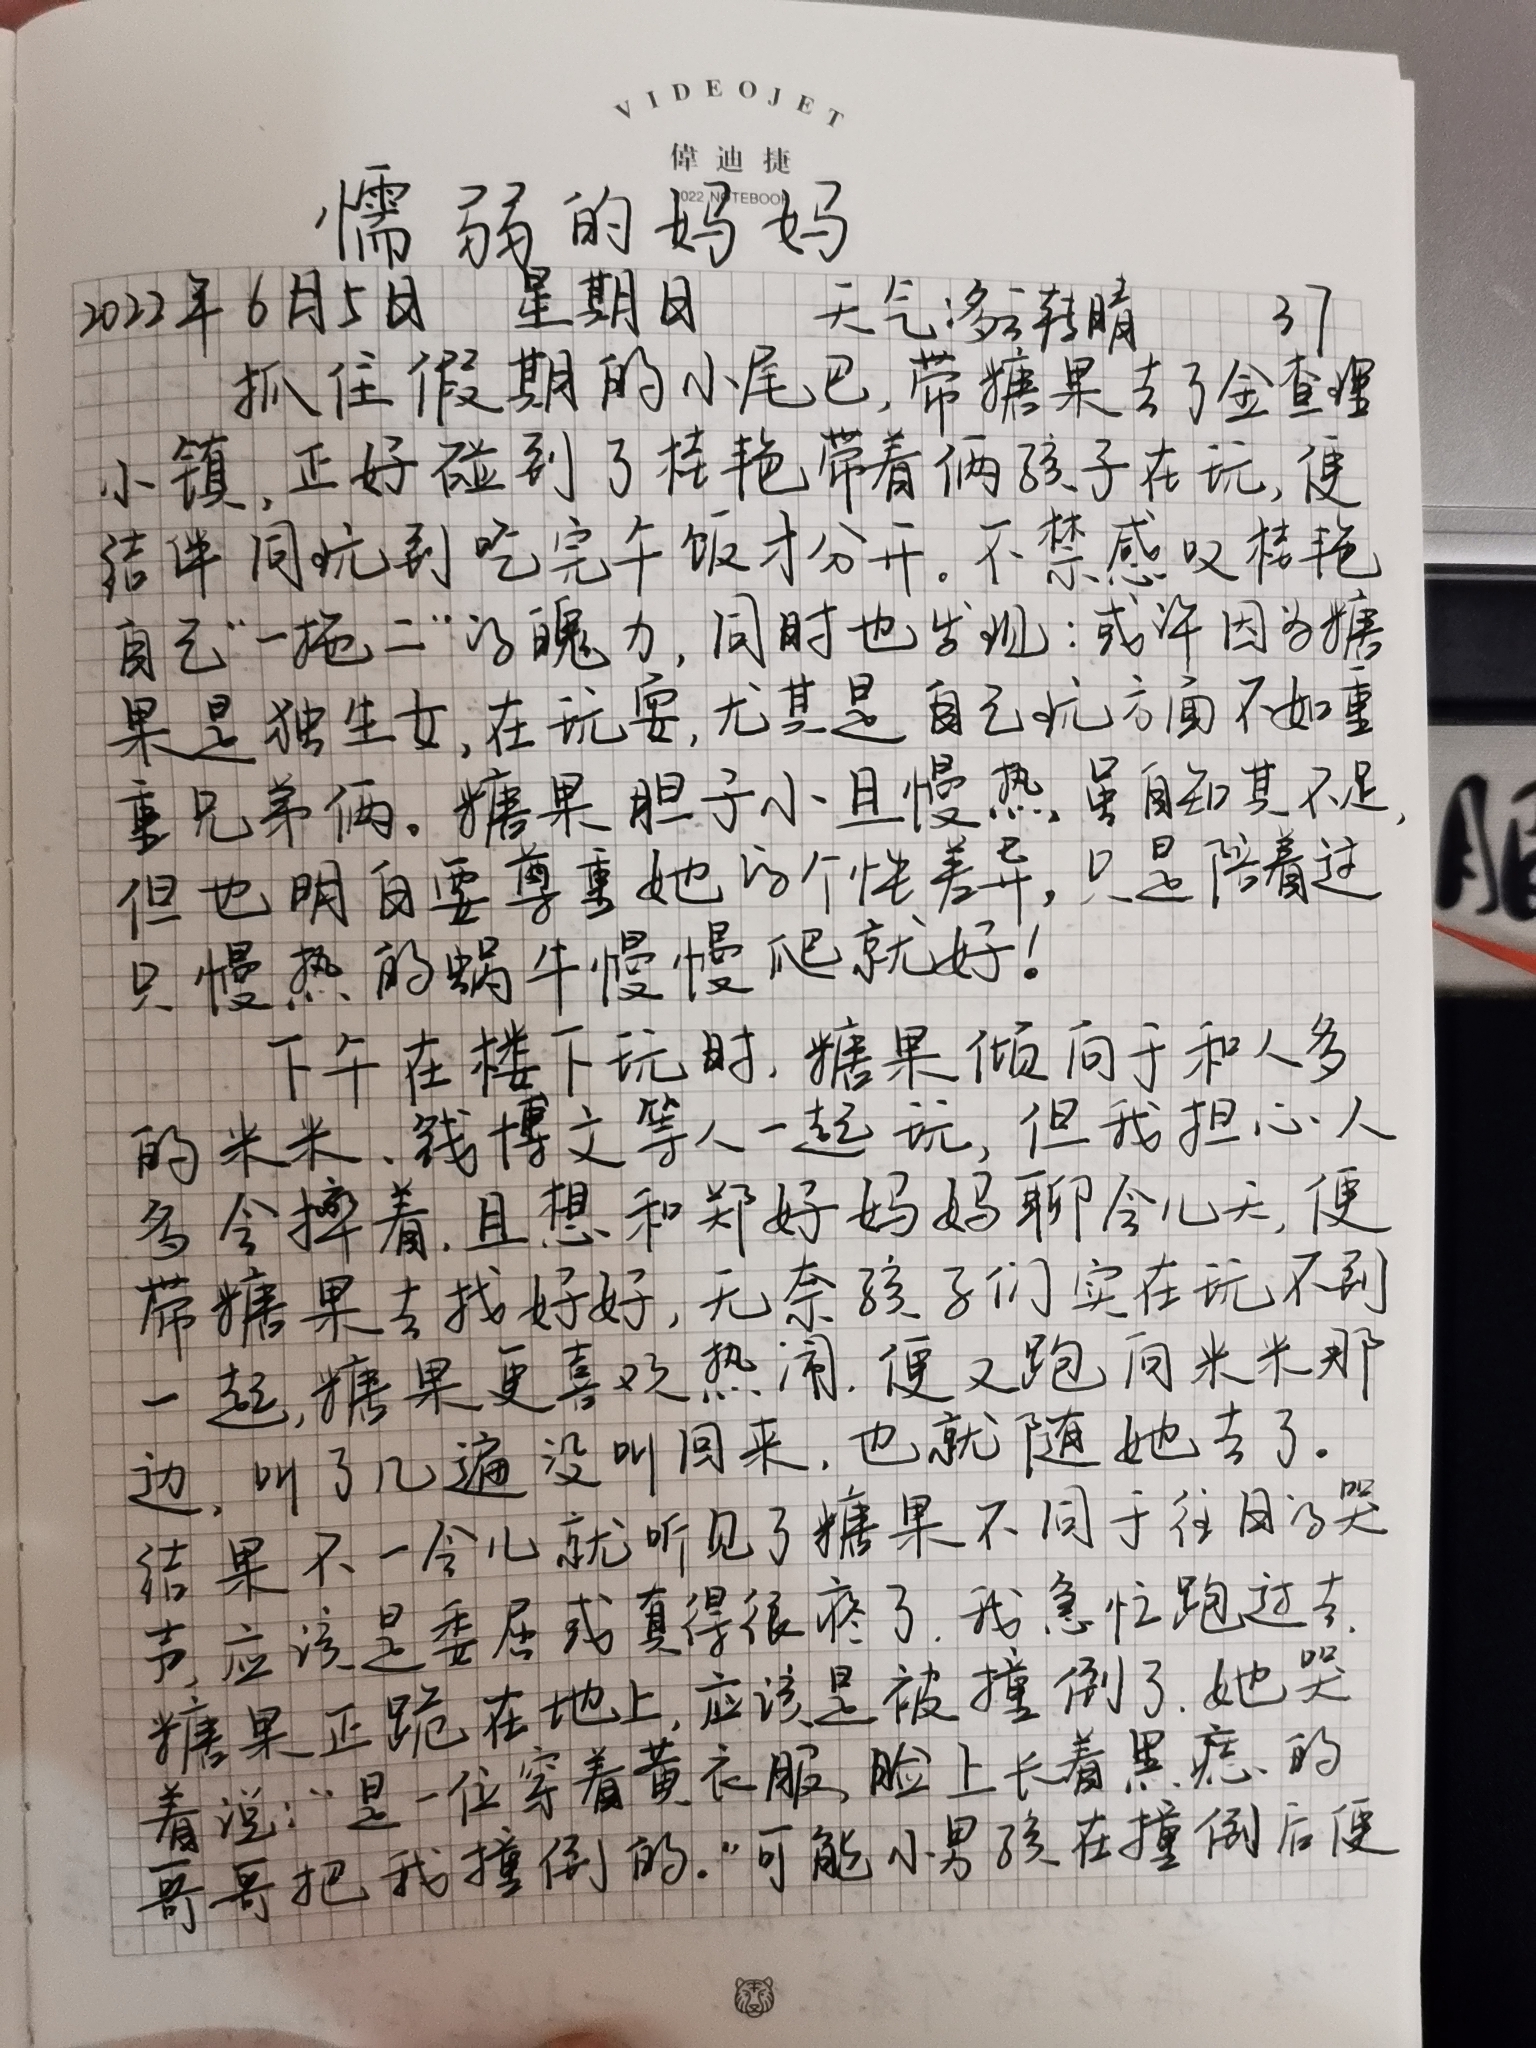 VIDEOJET
偉迪捷
2022 NOTEBOOK
懦弱的妈妈
2022年6月5日 星期日 天气多云转晴 37
抓住假期的小尾巴,带糖果去了金查理
小镇,正好碰到了桂艳带着俩孩子在玩,便
结伴同玩到吃完午饭才分开。不禁感叹桂艳
自己“一拖二”的魄力,同时也发现:或许因为糖
果是独生女,在玩耍,尤其是自己玩方面不如重
重兄弟俩。糖果胆子小且慢热,虽自知其不足,
但也明白要尊重她的个性差异,只是陪着这
只慢热的蜗牛慢慢爬就好!
下午在楼下玩时,糖果倾向于和人多
的米米、钱博文等人一起玩,但我担心人
多会摔着,且想和郑好妈妈聊会儿天,便
带糖果去找好好,无奈孩子们实在玩不到
一起,糖果更喜欢热闹,便又跑向米米那
边,叫了几遍没叫回来,也就随她去了。
结果不一会儿就听见了糖果不同于往日的哭
声,应该是委屈或真得很疼了,我急忙跑过去,
糖果正跪在地上,应该是被撞倒了,她哭
着说:“是一位穿着黄衣服,脸上长着黑痣的
哥哥把我撞倒的。”可能小男孩在撞倒后便